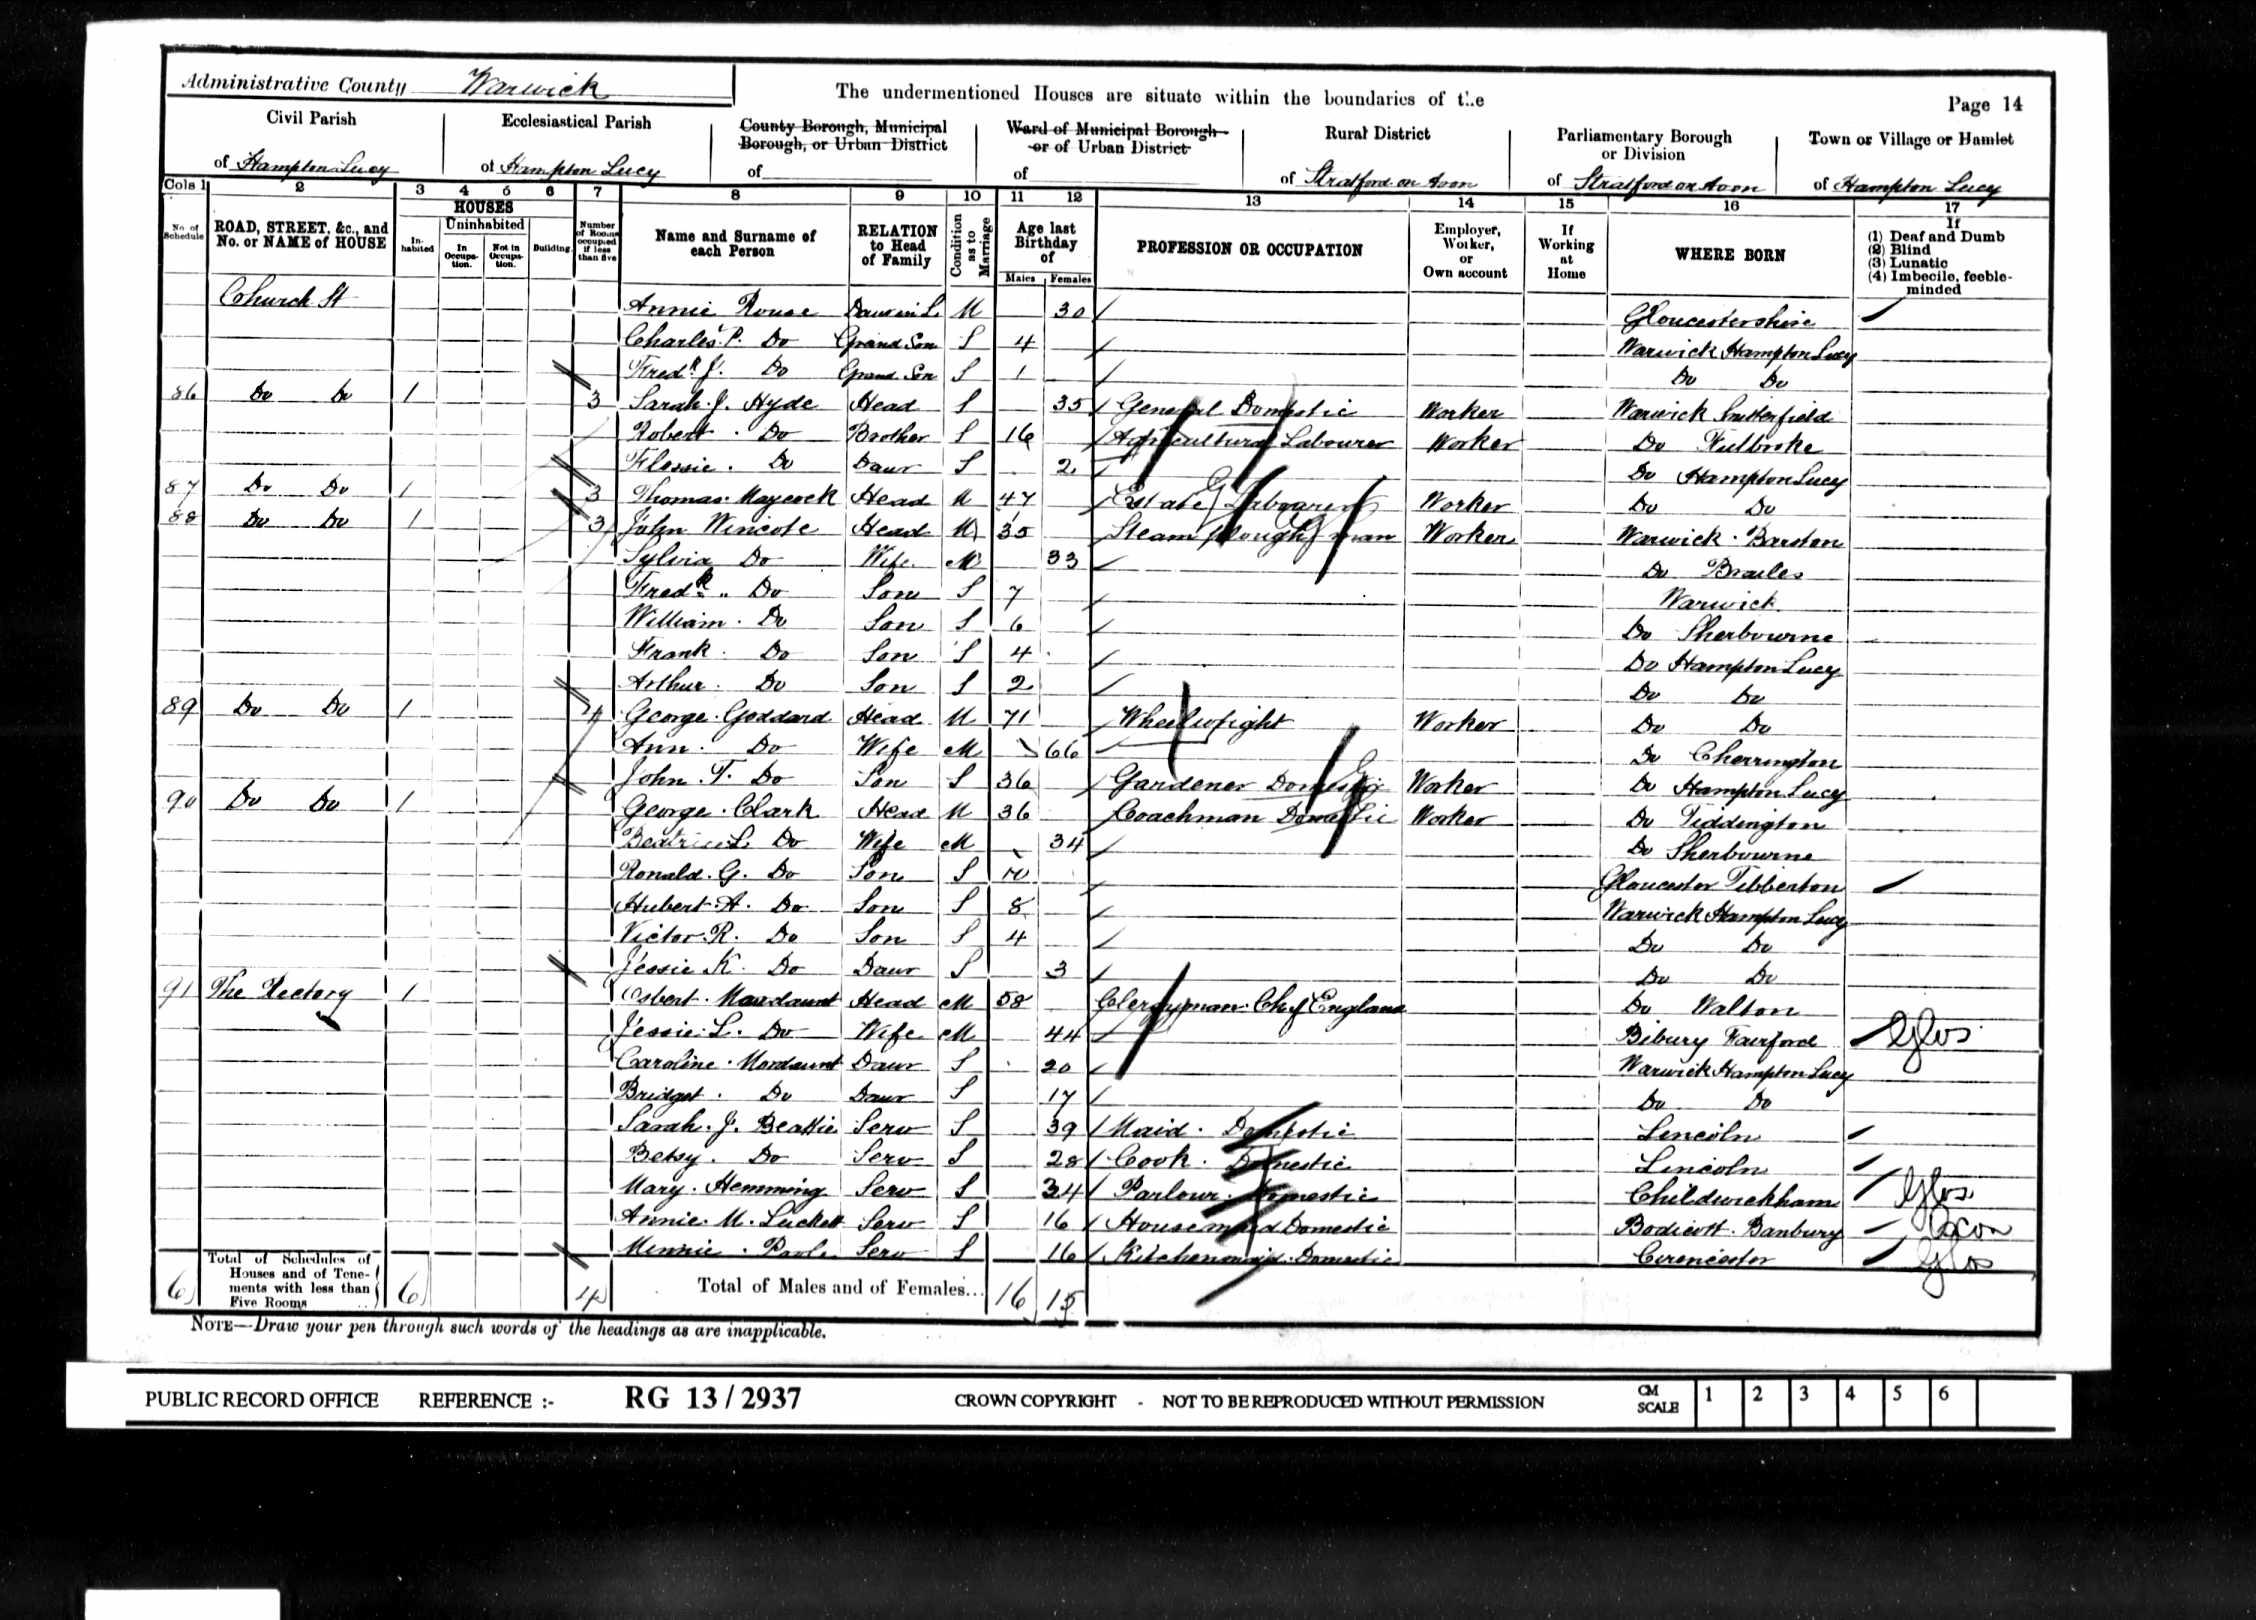 Administrative County Warwick
The undermentioned Houses are situate within the boundaries of the
Page 14
Civil Parish of Hampton Lucy
Ecclesiastical Parish of Hampton Lucy
County Borough, Municipal Borough, or Urban District of
Ward of Municipal Borough or of Urban District of
Rural District of Stratford on Avon
Parliamentary Borough or Division of Stratford on Avon
Town or Village or Hamlet of Hampton Lucy
Cols 1 2 3 4 5 6 7 8 9 10 11 12 13 14 15 16 17
No. of Schedule
ROAD, STREET, &c., and No. or NAME of HOUSE
HOUSES
Inhabited
Uninhabited
In Occupation.
Not in Occupation.
Building.
Number of Rooms occupied if less than five
Name and Surname of each Person
RELATION to Head of Family
Condition as to Marriage
Age last Birthday of
Males Females
PROFESSION OR OCCUPATION
Employer, Worker, or Own account
If Working at Home
WHERE BORN
If
(1) Deaf and Dumb
(2) Blind
(3) Lunatic
(4) Imbecile, feeble-minded
Church St Annie Rouse Daur in L. M 30 Gloucestershire
Charles P. Do Grand Son S 4 Warwick Hampton Lucy
Fredk J. Do Grand Son S 1 Do Do
86 Do Do 1 3 Sarah J. Hyde Head S 35 General Domestic Worker Warwick Snitterfield
Robert Do Brother S 16 Agricultural Labourer Worker Do Fulbroke
Flossie Do Daur S 2 Do Hampton Lucy
87 Do Do 1 3 Thomas Maycock Head M 47 Estate Labourer Worker Do Do
88 Do Do 1 3 John Wincote Head M 35 Steam Plough man Worker Warwick Barston
Sylvia Do Wife M 33 Do Brailes
Fredk Do Son S 7 Warwick
William Do Son S 6 Do Sherbourne
Frank Do Son S 4 Do Hampton Lucy
Arthur Do Son S 2 Do Do
89 Do Do 1 4 George Goddard Head M 71 Wheelwright Worker Do Do
Ann Do Wife M 66 Do Cherrington
John T. Do Son S 36 Gardener Domestic Worker Do Hampton Lucy
90 Do Do 1 George Clark Head M 36 Coachman Domestic Worker Do Tiddington
Beatrice L. Do Wife M 34 Do Sherbourne
Ronald G. Do Son S 10 Gloucester Tibberton
Hubert A. Do Son S 8 Warwick Hampton Lucy
Victor R. Do Son S 4 Do Do
Jessie K. Do Daur S 3 Do Do
91 The Rectory 1 Osbert Mordaunt Head M 58 Clergyman Ch of England Do Walton
Jessie L. Do Wife M 44 Bibury Fairford Glos
Caroline Mordaunt Daur S 20 Warwick Hampton Lucy
Bridget Do Daur S 17 Do Do
Sarah J. Beattie Serv S 39 Maid Domestic Lincoln
Betsy Do Serv S 28 Cook Domestic Lincoln
Mary Hemming Serv S 34 Parlour Domestic Childwickham Glos
Annie M. Luckett Serv S 16 Housemaid Domestic Bodicott Banbury Oxon
Minnie Serv S 16 Kitchenmaid Domestic Cirencester Glos
6 Total of Schedules of Houses and of Tenements with less than Five Rooms 6 4 Total of Males and of Females... 16 15
NOTE—Draw your pen through such words of the headings as are inapplicable.
PUBLIC RECORD OFFICE REFERENCE :- RG 13 / 2937 CROWN COPYRIGHT - NOT TO BE REPRODUCED WITHOUT PERMISSION CM SCALE 1 2 3 4 5 6